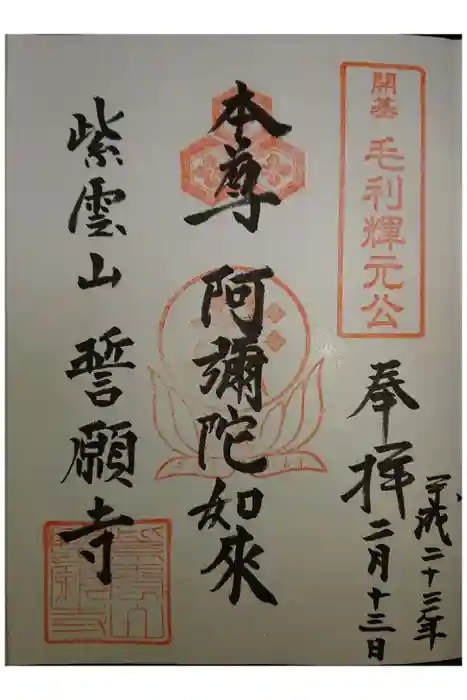 開基 毛利輝元公
奉拝
平成二十三年
二月十三日
本尊 阿彌陀如來
紫雲山 誓願寺